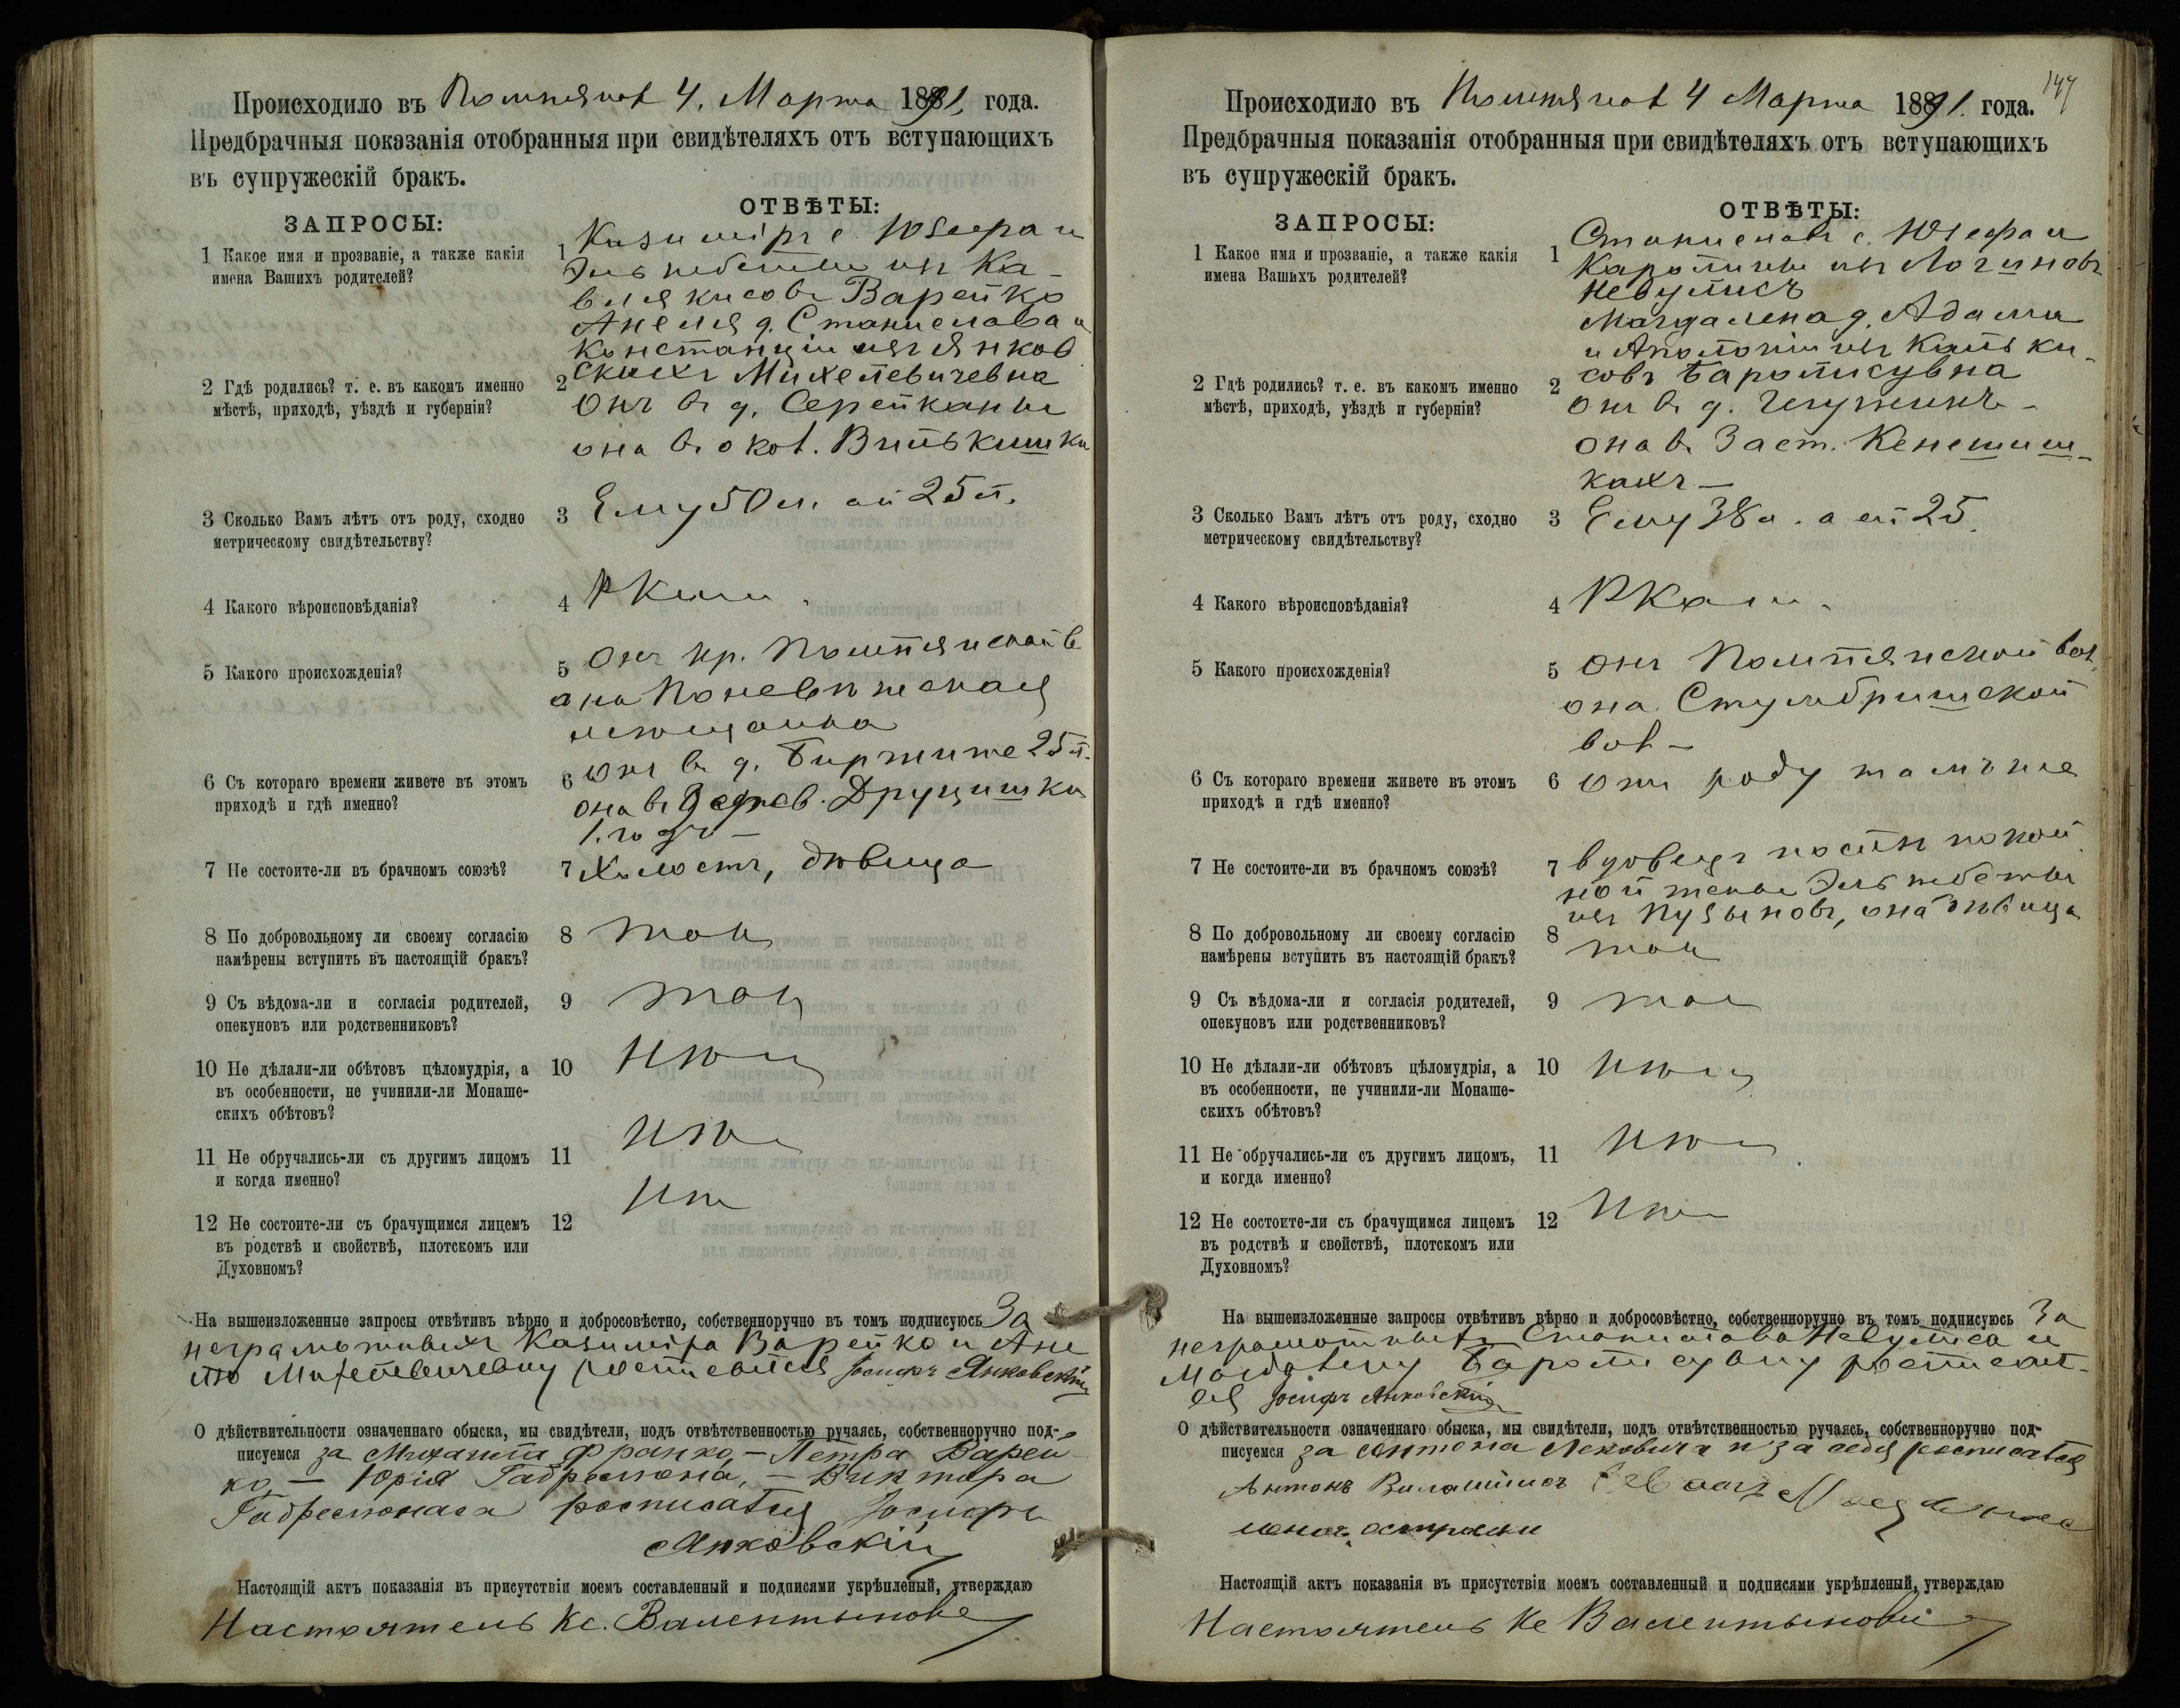 Происходило въ Помпянах 4. Марта 1891 года.
Предбрачныя показанія отобранныя при свидѣтеляхъ отъ вступающихъ
въ супружескій бракъ.
ЗАПРОСЫ:
ОТВѢТЫ:
1 Какое имя и прозваніе, а также какія
имена Вашихъ родителей?
1 Казиміръ с. Юзефа и
Эльжбеты изъ Ка-
влякисовъ Варейко
Анеля д. Станислава и
Констанціи изъ Янков
скихъ Михелевичевна
2 Гдѣ родились? т. е. въ какомъ именно
мѣстѣ, приходѣ, уѣздѣ и губерніи?
2 Онъ въ д. Серейканы
она въ окол.
3 Сколько Вамъ лѣтъ отъ роду, сходно
метрическому свидѣтельству?
3 Ему 50 л. ей 25 л.
4 Какого вѣроисповѣданія?
4 Ркат.
5 Какого происхожденія?
5 Онъ кр. Помпянской в
она Поневѣжская
мѣщанка
6 Съ котораго времени живете въ этомъ
приходѣ и гдѣ именно?
6 Онъ въ д. Биржите 25 л.
она въ
1. годъ
7 Не состоите-ли въ брачномъ союзѣ?
7 Холостъ, дѣвица
8 По добровольному ли своему согласію
намѣрены вступить въ настоящій бракъ?
8 так
9 Съ вѣдома-ли и согласія родителей,
опекуновъ или родственниковъ?
9 так
10 Не дѣлали-ли обѣтовъ цѣломудрія, а
въ особенности, не учинили-ли Монаше-
скихъ обѣтовъ?
10 нѣт
11 Не обручались-ли съ другимъ лицомъ
и когда именно?
11 нѣт
12 Не состоите-ли съ брачущимся лицемъ
въ родствѣ и свойствѣ, плотскомъ или
Духовномъ?
12 нѣт
На вышеизложенные запросы отвѣтивъ вѣрно и добросовѣстно, собственноручно въ томъ подписуюсь За
неграмотныхъ Казиміра Варейко и Ане
лю Михелевичевну росписался Іосифъ Янковскій
О дѣйствительности означеннаго обыска, мы свидѣтели, подъ отвѣтственностью ручаясь, собственноручно под-
писуемся за Михаила Франко, — Петра Варей-
ко, — Юрія Габрелюна, — Виктора
Габрелюнаса росписался Іосифъ
Янковскій
Настоящій актъ показанія въ присутствіи моемъ составленный и подписями укрѣпленый, утверждаю
Настоятель Кс. Валентынови
147
Происходило въ Помпянах 4 Марта 1891. года.
Предбрачныя показанія отобранныя при свидѣтеляхъ отъ вступающихъ
въ супружескій бракъ.
ЗАПРОСЫ:
ОТВѢТЫ:
1 Какое имя и прозваніе, а также какія
имена Вашихъ родителей?
1 Станиславъ с. Юзефа и
Каролины изъ Логиновъ
Невулисъ
Магдалена д. Адама
и Аполоніи изъ
совъ Баролисувна
2 Гдѣ родились? т. е. въ какомъ именно
мѣстѣ, приходѣ, уѣздѣ и губерніи?
2 Онъ въ д.
она въ Заст. Кенешиш-
кахъ —
3 Сколько Вамъ лѣтъ отъ роду, сходно
метрическому свидѣтельству?
3 Ему 38 л. а ей 25.
4 Какого вѣроисповѣданія?
4 Ркат.
5 Какого происхожденія?
5 Онъ Помпянской вол.
она Стумбришской
вол —
6 Съ котораго времени живете въ этомъ
приходѣ и гдѣ именно?
6 роду тамъ же
7 Не состоите-ли въ брачномъ союзѣ?
7 вдовецъ послѣ покой
ной жены Эльжбеты
изъ Пузыновъ, она дѣвица
8 По добровольному ли своему согласію
намѣрены вступить въ настоящій бракъ?
8 так
9 Съ вѣдома-ли и согласія родителей,
опекуновъ или родственниковъ?
9 так
10 Не дѣлали-ли обѣтовъ цѣломудрія, а
въ особенности, не учинили-ли Монаше-
скихъ обѣтовъ?
10 нѣт
11 Не обручались-ли съ другимъ лицомъ,
и когда именно?
11 нѣт
12 Не состоите-ли съ брачущимся лицемъ
въ родствѣ и свойствѣ, плотскомъ или
Духовномъ?
12 нѣт
На вышеизложенные запросы отвѣтивъ вѣрно и добросовѣстно, собственноручно въ томъ подписуюсь За
неграмотныхъ Станислава Невулиса и
Магдалену Баролисувну росписал-
ся Іосифъ Янковскій
О дѣйствительности означеннаго обыска, мы свидѣтели, подъ отвѣтственностью ручаясь, собственноручно под-
писуемся за Антона Лековича и за себя росписался
Антонъ
Настоящій актъ показанія въ присутствіи моемъ составленный и подписями укрѣпленый, утверждаю
Настоятель Кс Валентынови